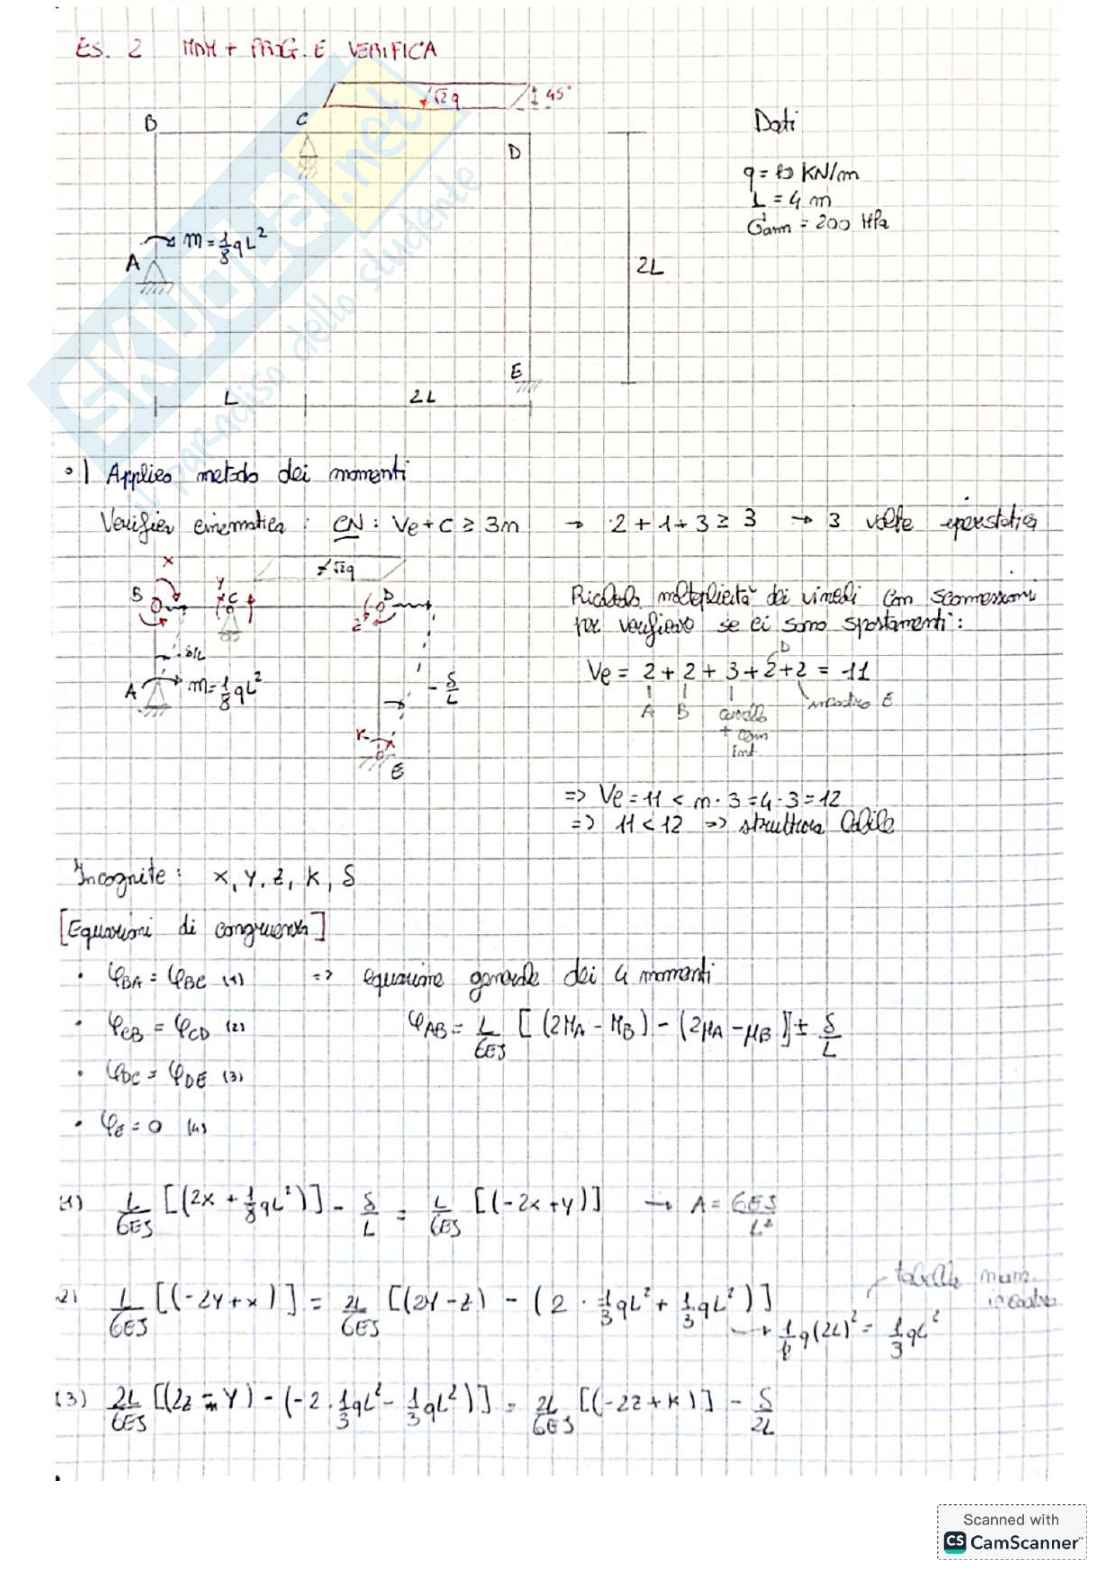 ES. 2 MDM + PROG. E VERIFICA
√2q
45°
B
C
D
Dati
q = 10 KN/m
L = 4 m
σam = 200 MPa
m = 1/8 qL²
A
2L
E
L
2L
SKUOLA.net
dello studente
•1 Applico metodo dei momenti
Verifica cinematica : CN : Ve + C ≥ 3m → 2 + 1 + 3 ≥ 3 → 3 volte iperstatica
x
√2q
B
y
C
D
z
δ/L
A
m = 1/8 qL²
δ/L
K
E
Ricalcolo molteplicità dei vincoli con sconnessioni
per verificare se ci sono spostamenti :
D
Ve = 2 + 2 + 3 + 2 + 2 = 11
A B carrello incastro E
+ cern
int
=> Ve = 11 < m · 3 = 4 · 3 = 12
=> 11 < 12 => struttura labile
Incognite : x, y, z, K, δ
[Equazioni di congruenza]
• φBA = φBC (1) => equazione generale dei 4 momenti
• φCB = φCD (2) φAB = L/6EJ [(2MA - MB) - (2μA - μB)] ± δ/L
• φDC = φDE (3)
• φE = 0 (4)
(1) L/6EJ [(2x + 1/8 qL²)] - δ/L = L/6EJ [(-2x + y)] → A = 6EJ/L²
tabella mom. incastro
(2) L/6EJ [(-2y + x)] = 2L/6EJ [(2y - z) - (2 · 1/3 qL² + 1/3 qL²)]
→ q(2L)² = 1/3 qL²
(3) 2L/6EJ [(2z - y) - (-2 · 1/3 qL² - 1/3 qL²)] = 2L/6EJ [(-2z + K)] - δ/2L
Scanned with
CS CamScanner